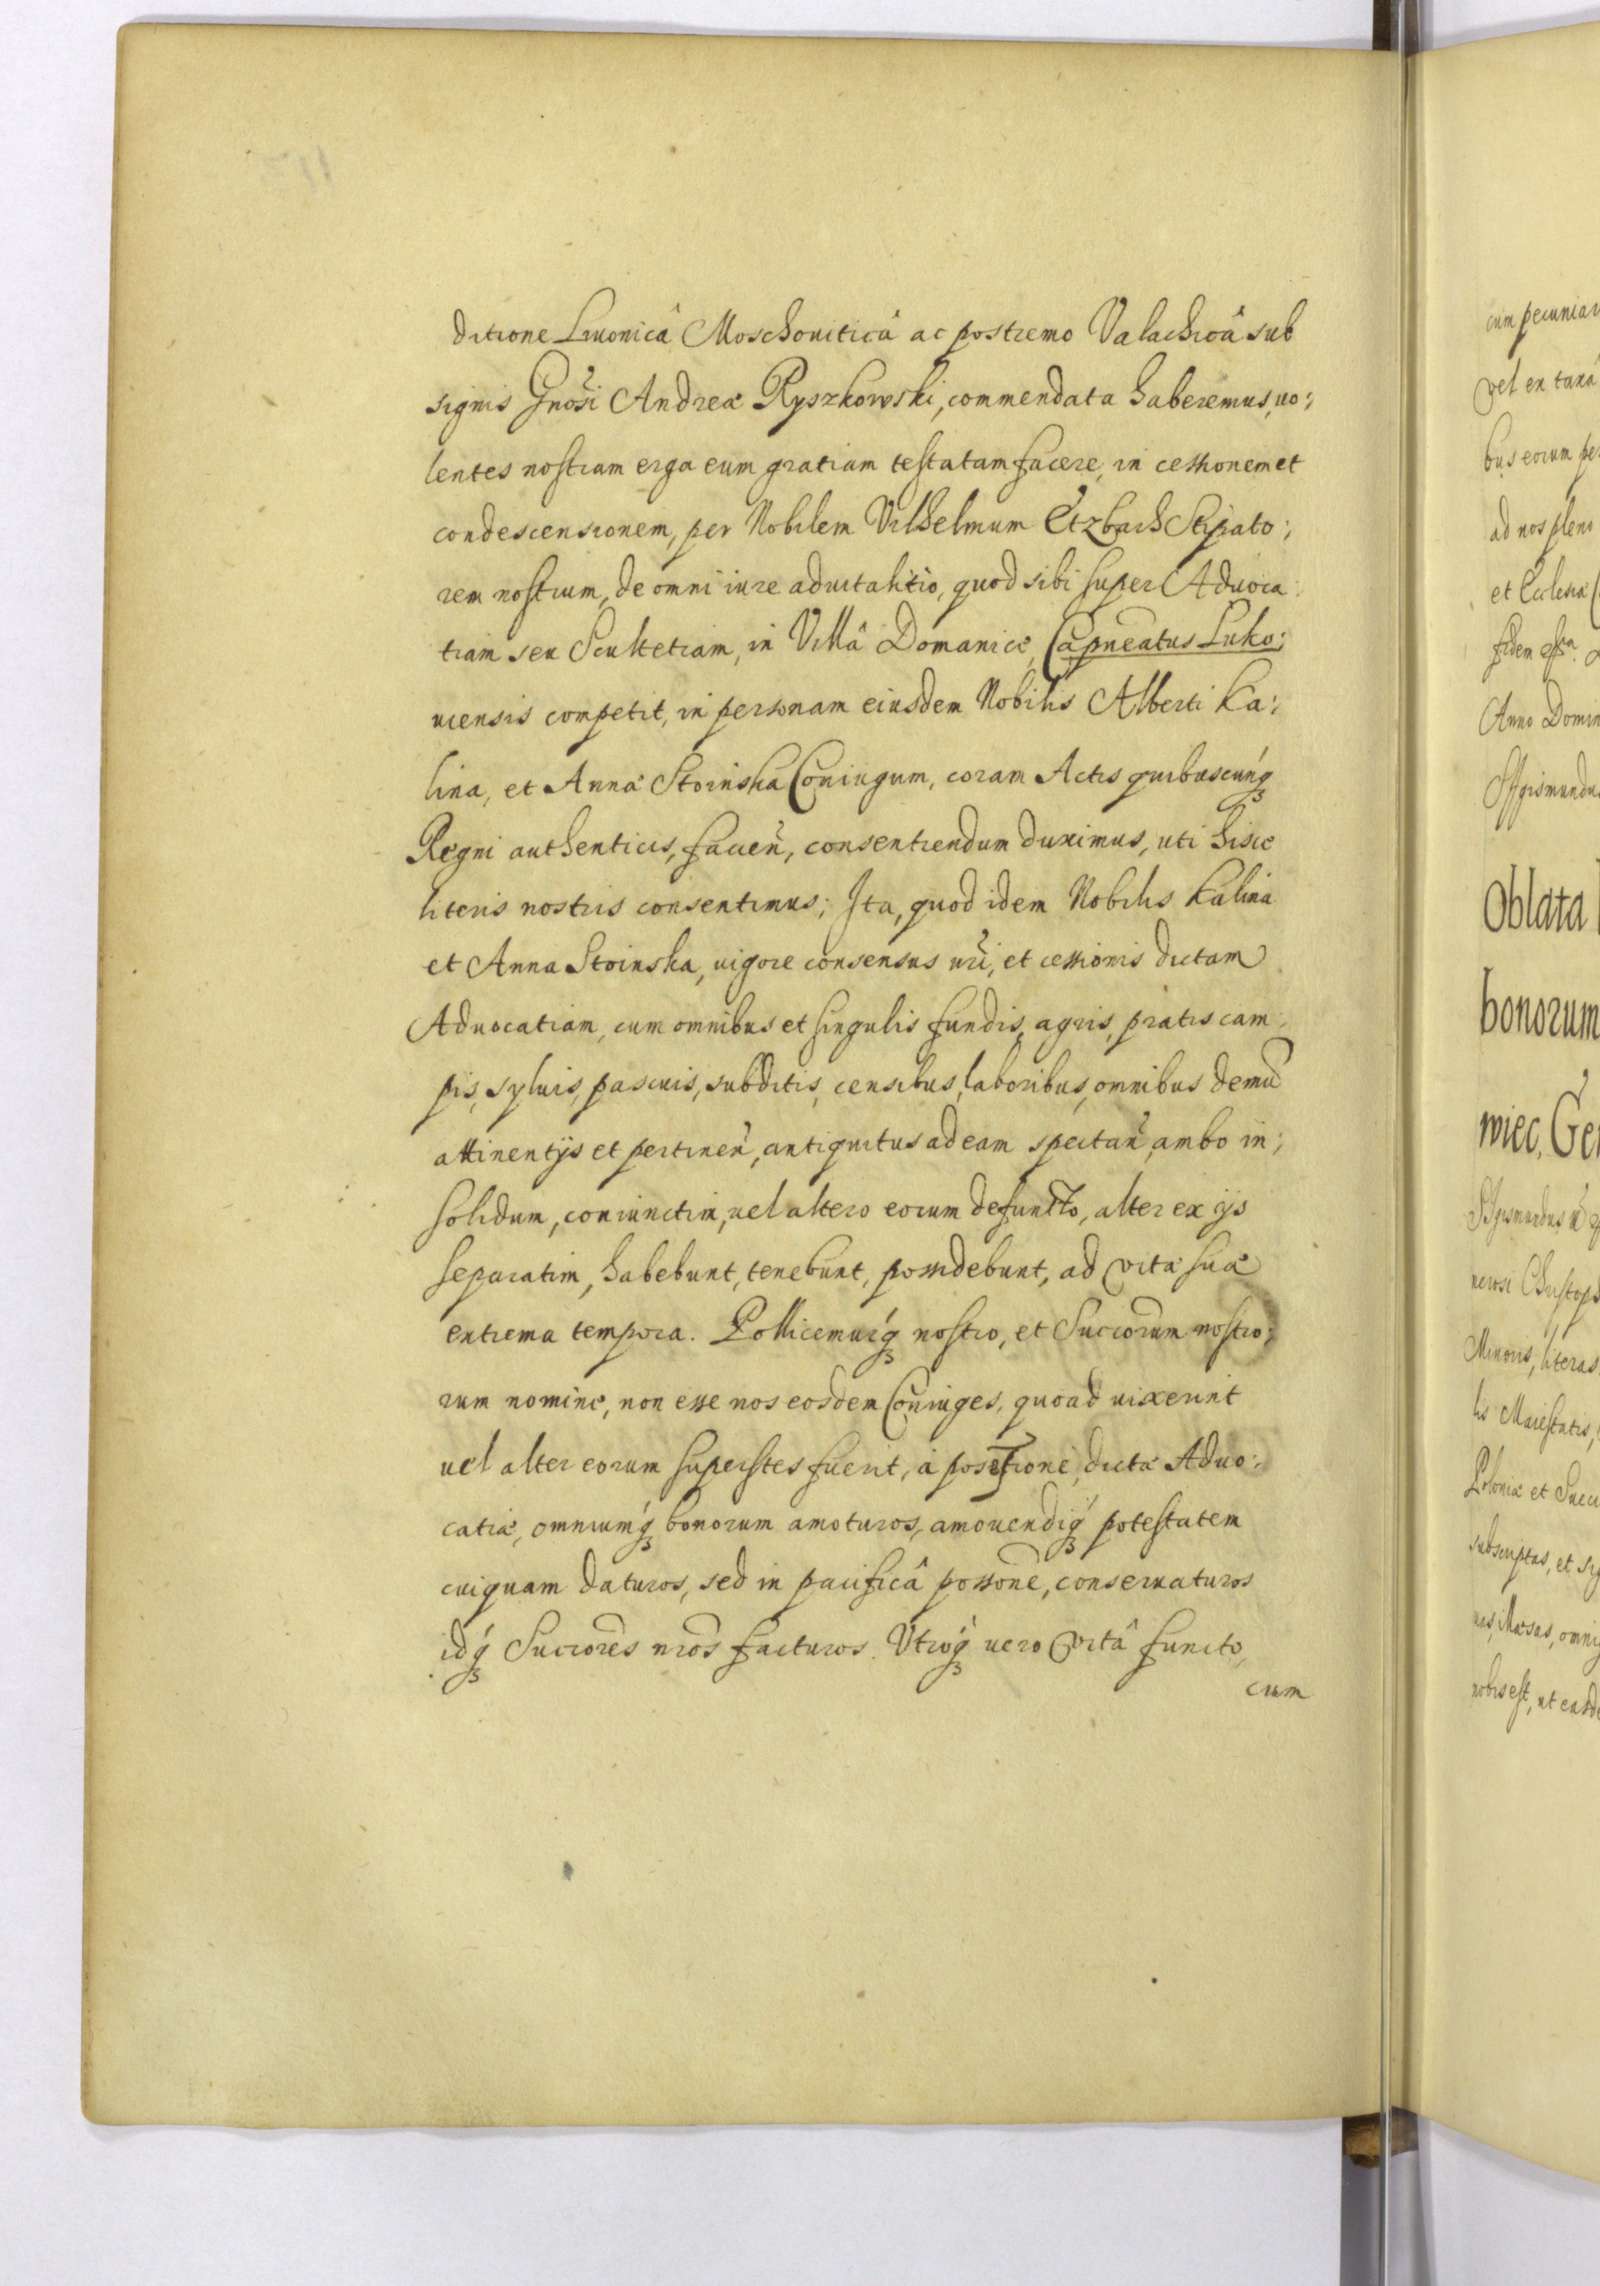 ditione Liuonicâ Moschouiticâ ac postremo Valachicâ sub
signis Gnosi Andreæ Ryszkowski, commendata haberemus, uo:
lentes nostram erga eum gratiam testatam facere, in cessionem et
condescensionem, per Nobilem Vilhelmum Etzbach Stipato:
rem nostrum, de omni iure aduitalitio, quod sibi super Aduoca
tiam seu Scultetiam, in Villâ Domanice, Capneatus Luko:
uiensis competit, in personam eiusdem Nobilis Alberti Ka:
lina, et Annæ Stoinska Coniugum, coram Actis quibuscunq
Regni authenticis, facien, consentiendum duximus, uti hisce
literis nostris consentimus; Ita, quod idem Nobilis Kalina
et Anna Stoinska, uigore consensus nri, et cessionis dictam
Aduocatiam, cum omnibus et singulis fundis, agris, pratis cam:
pis, syluis, pascuis, subditis, censibus, laboribus, omnibus demu
attinentijs et pertinen, antiquitus ad eam spectan, ambo in:
solidum, coniunctim, uel altero eorum defuncto, alter ex ijs
separatim, habebunt, tenebunt, possidebunt, ad vitæ suæ
extrema tempora. Pollicemurq nostro, et Succorum nostro:
rum nomine, non esse nos eosdem Coniuges, quoad uixerint
uel alter eorum superstes fuerit, à possione, dictæ Aduo:
catiæ, omniumq bonorum amoturos, amouendiq potestatem
cuiquam daturos, sed in pacificâ possone, conseruaturos
idq Succores nros facturos. Vtroq uero vitâ functo,
cum
cum pecuniar
vel ex taxa
bus eorum per
ad nos pleno
et Ecclesiæ
fidem
Anno Domin
Sigismundus
Oblata
bonorum
wiec, Ge
Sigismundus
nerosi Christoph
Minoris, literas
lis Maiestatis,
Poloniæ et Suec
subscriptas, et sig
nobis est, ut easde